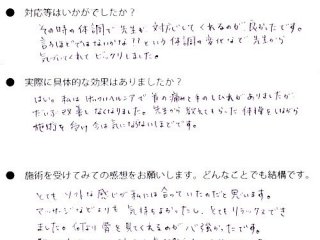 ● 対応等はいかがでしたか？
その時の体調で先生が対応してくれるのが良かったです。
言うほどではないかな??という体調の変化なで先生から
気づいてくれてビックリしました。
● 実際に具体的な効果はありましたか？
はい。私はヘルニアで首の痛みと手のしびれがありましたが
だいぶ改善しなくなりました。先生から教えてもらった体操をしながら
施術を受け今は気にならないほどです。
● 施術を受けてみての感想をお願いします。どんなことでも結構です。
とてもソフトな感じが私には合っていたのだと思います。
マッサージなどよりも気持ちよかったし、とてもリラックスでき
ました。何より骨を見てくれるのが心強かったです。